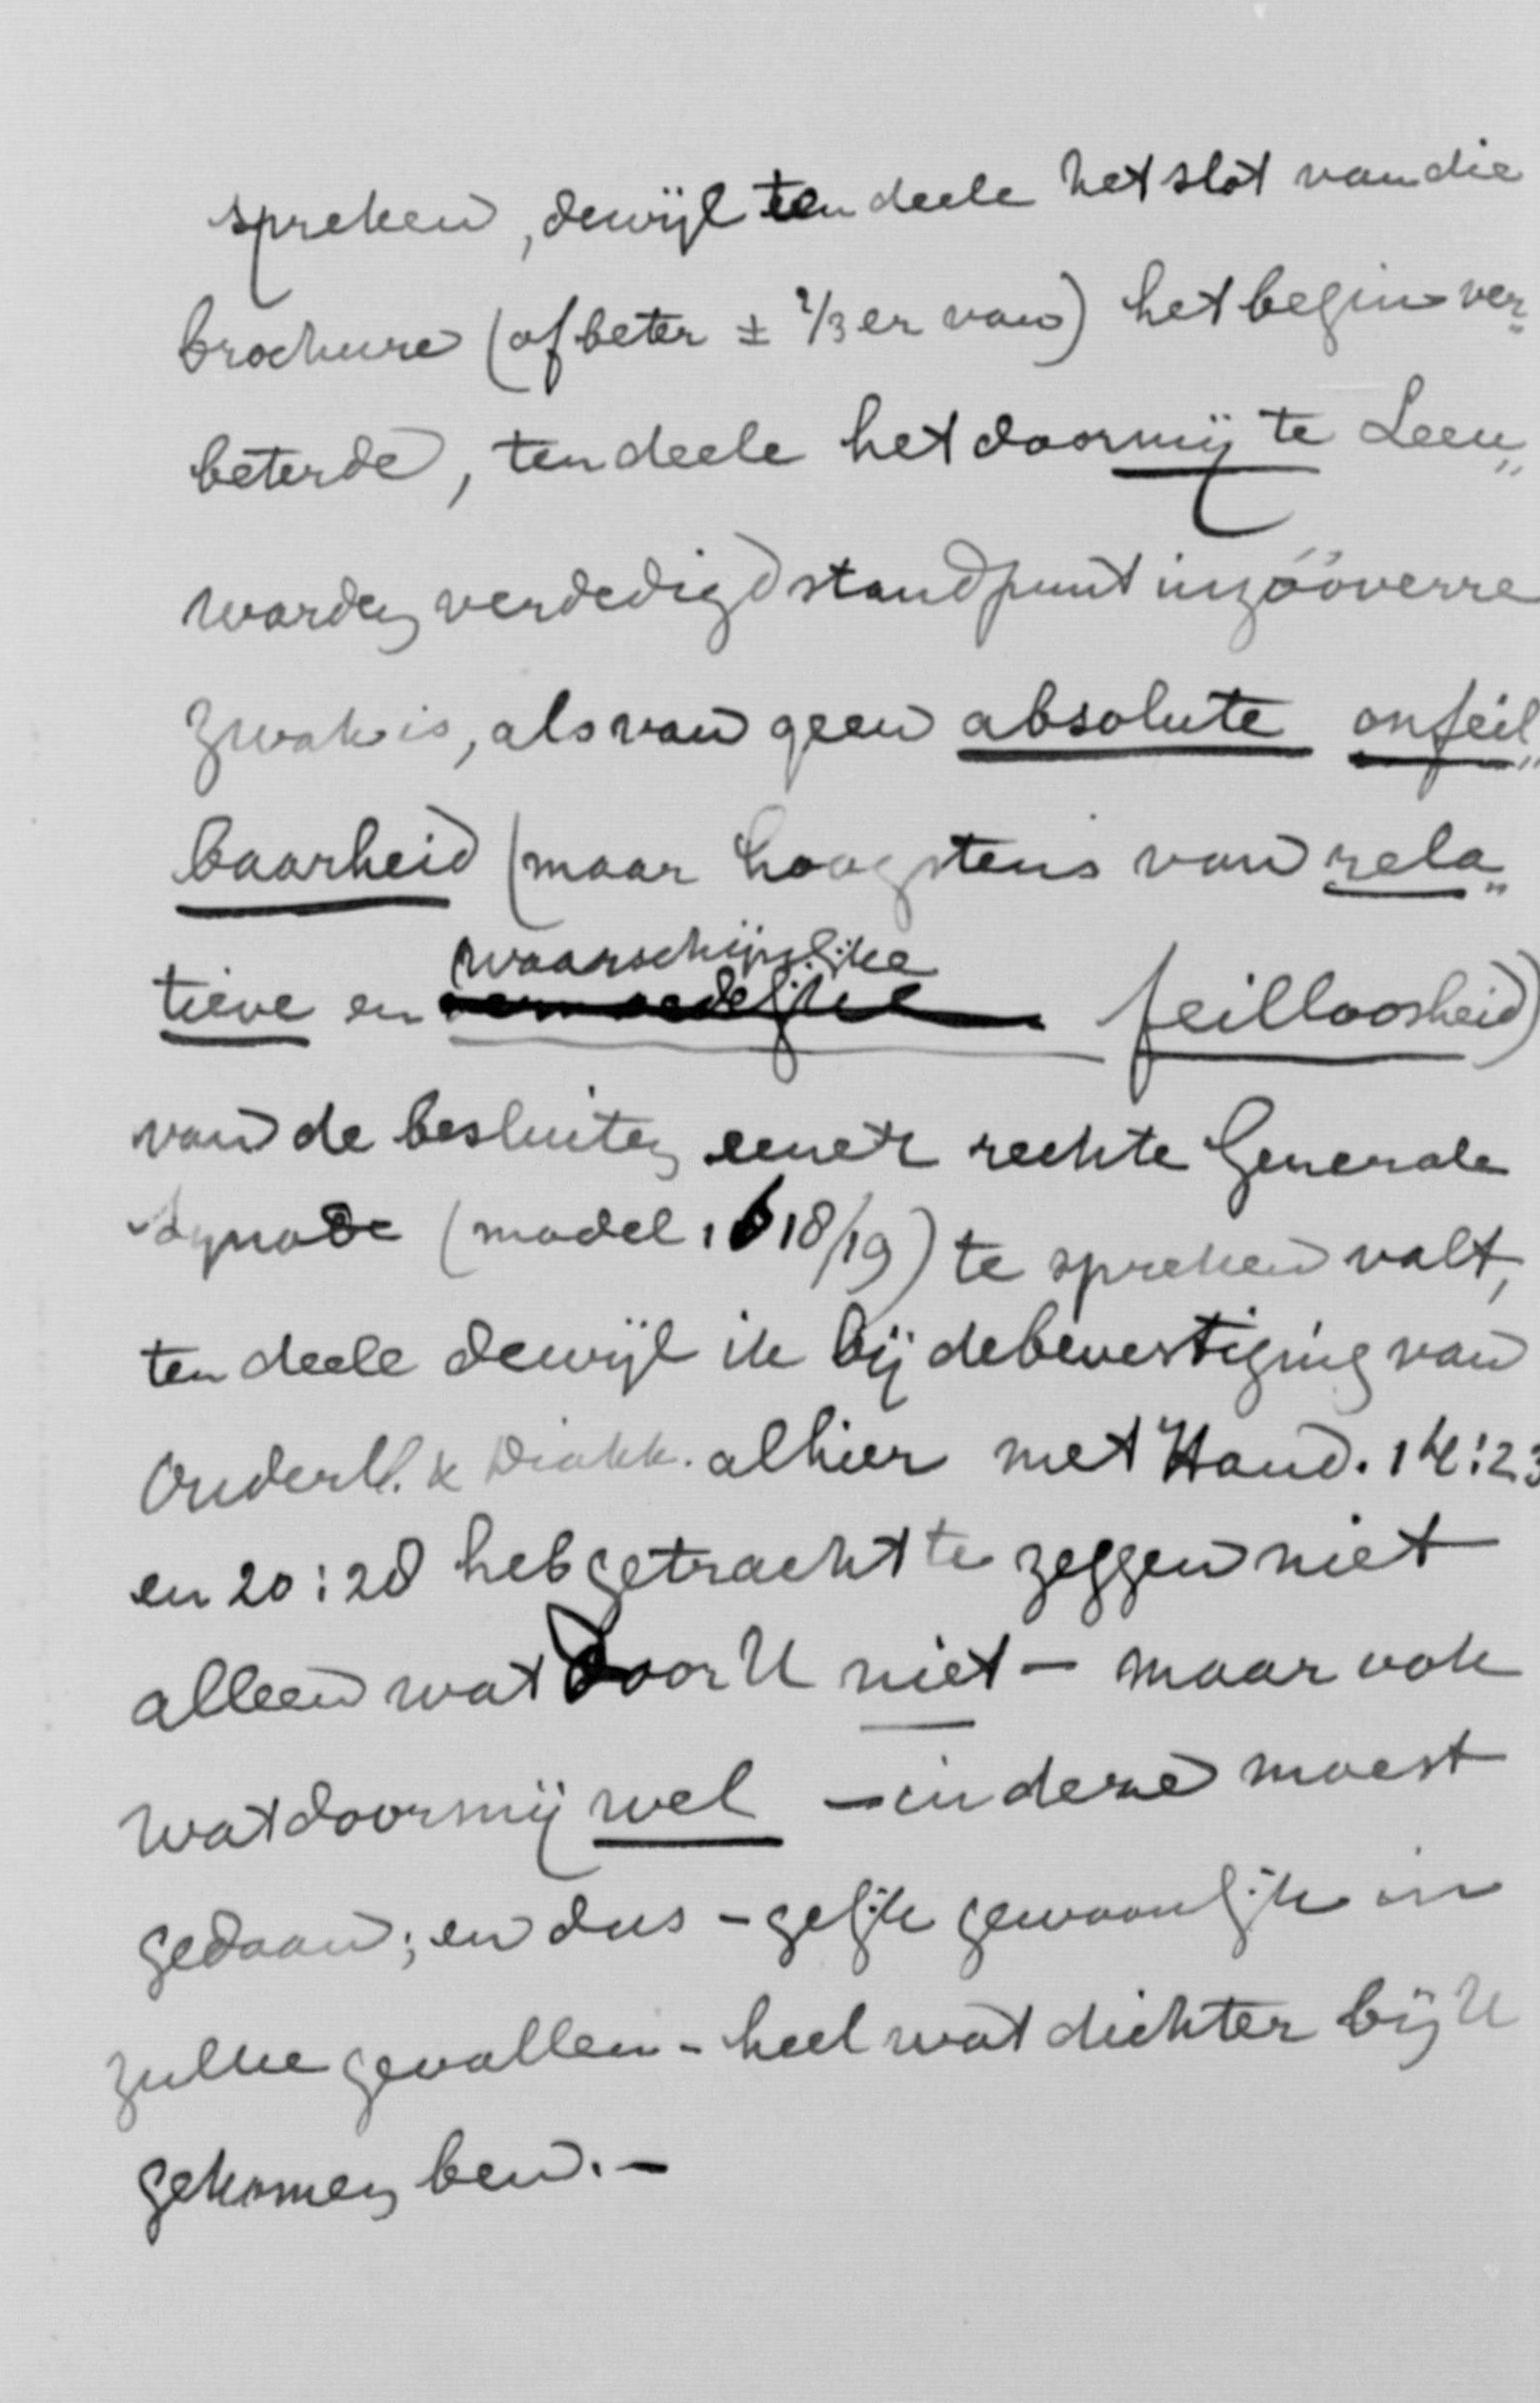 spreken, dewijl ten deele het slot van die
brochure (of beter ± 2/3 er van) het begin ver=
beterde, ten deele het door mij te Leeu„
warden verdedigd standpunt in zóóverre
zwak is, als van geen absolute onfeil„
baarheid (maar hoogstens van rela„
tieve en waarschijnlijke feilloosheid)
van de besluiten eener rechte Generale
Synode (model 1618/19) te spreken valt,
ten deele dewijl ik bij de bevestiging van
Ouderl. & Diakk. alhier met Hand. 14:23
en 20:28 heb getracht te zeggen niet
alleen wat door U niet - maar ook
wat door mij wel - in deze moest
gedaan; en dus - gelijk gewoonlijk in
zulke gevallen - heel wat dichter bij U
gekomen ben. -